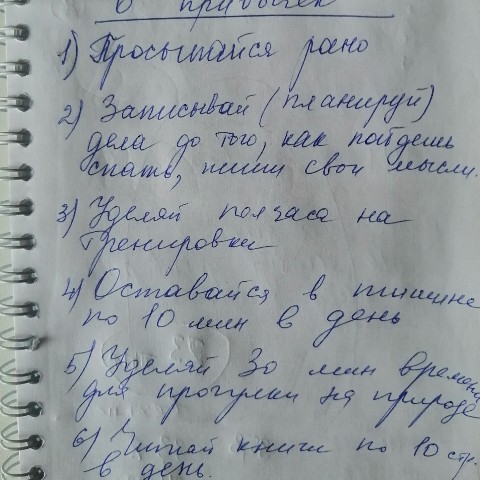 6 привычек
1) Просыпайся рано
2) Записывай (планируй)
дела до того, как пойдешь
спать, пиши свои мысли.
3) Уделяй полчаса на
тренировки
4) Оставайся в тишине
по 10 мин в день
5) Уделяй 30 мин времени
для прогулки на природе
6) Читай книги по 10 стр.
в день.